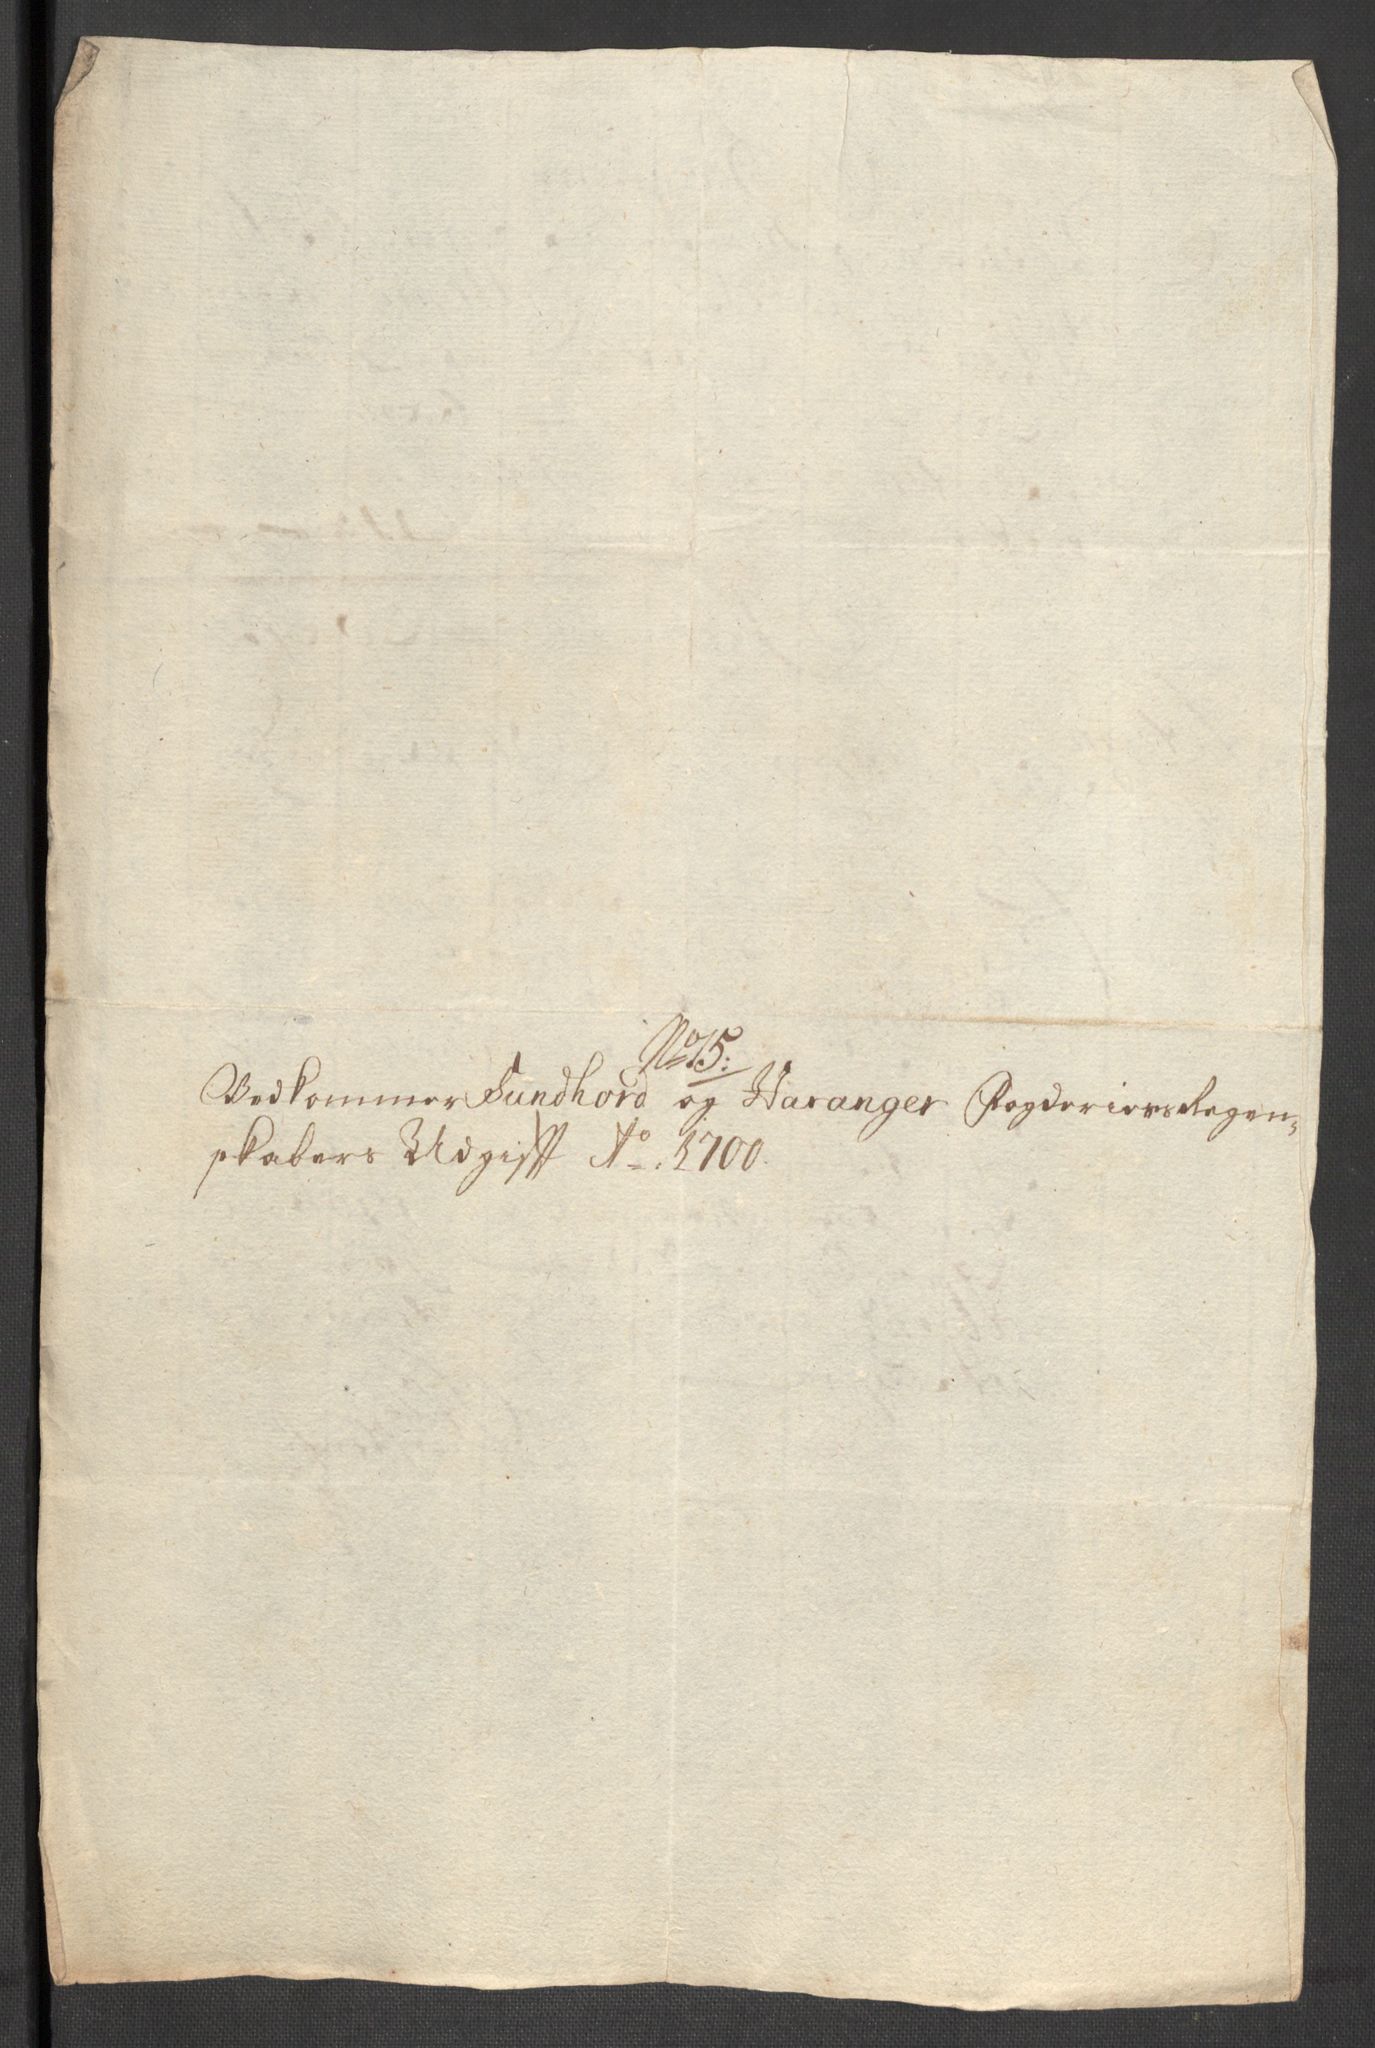 No 15:
Vedkommer Sundhord og Haranger Fogderiers Regen-
skabers Udgifft Ao. 1700.